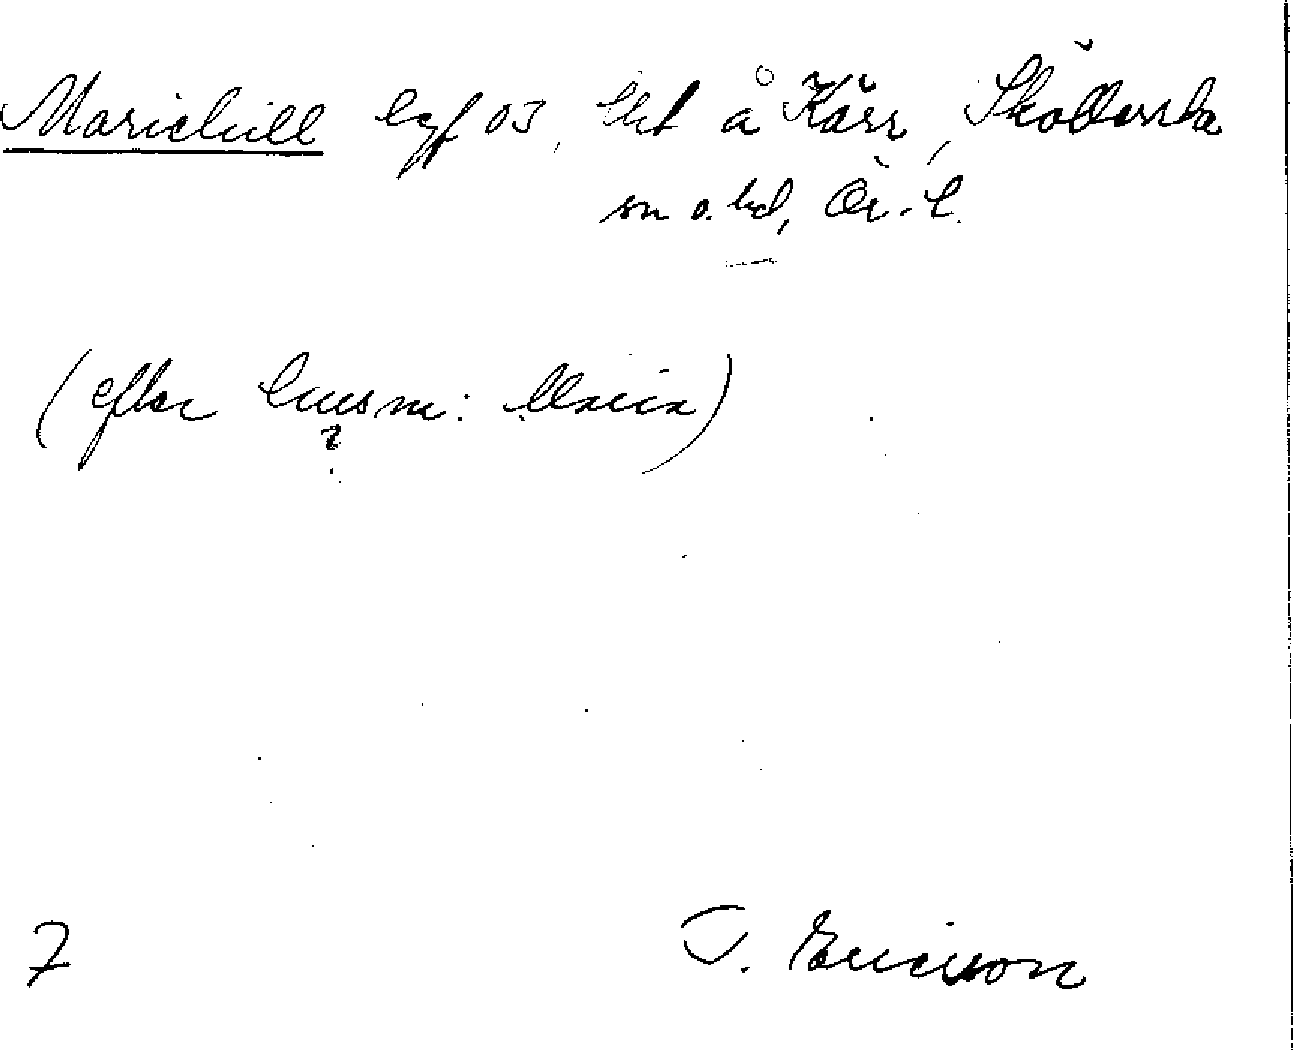 Mariehill lgf 03, tkt å Kärr, Skölversta
sn o. hd, Ör. l.
(efter husm: Maria)
?
7 T. Ericsson